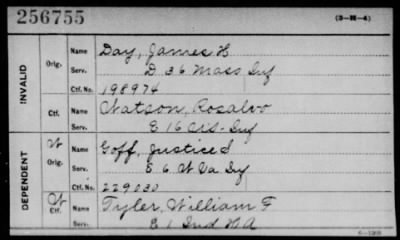 256755
(3-H-4)
INVALID
Orig.
Name Day, James H
Serv. D 36 Mass Inf
Ctf. No. 198974
Ctf.
Name Watson, Rosalvo
Serv. E 16 Wis. Inf
DEPENDENT
W Orig.
Name Goff, Justice S
Serv. E 6 W Va Inf
Ctf. No. 229030
W Ctf.
Name Tyler, William F
Serv. E 1 Ind H A